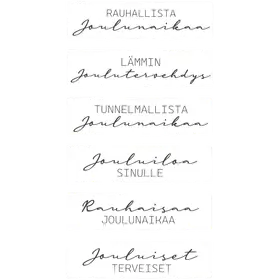 RAUHALLISTA
Joulunaikaa
LÄMMIN
Joulutervehdys
TUNNELMALLISTA
Joulunaikaa
Jouluiloa
SINULLE
Rauhaisaa
JOULUNAIKAA
Jouluiset
TERVEISET